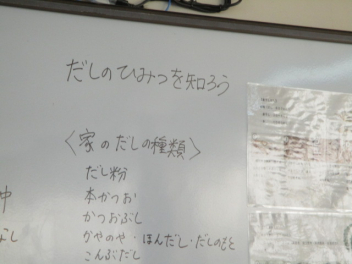 だしのひみつを知ろう
〈家のだしの種類〉
だし粉
本かつお
かつおぶし
かやのや・ほんだし・だしのもと
こんぶだし
中
なし